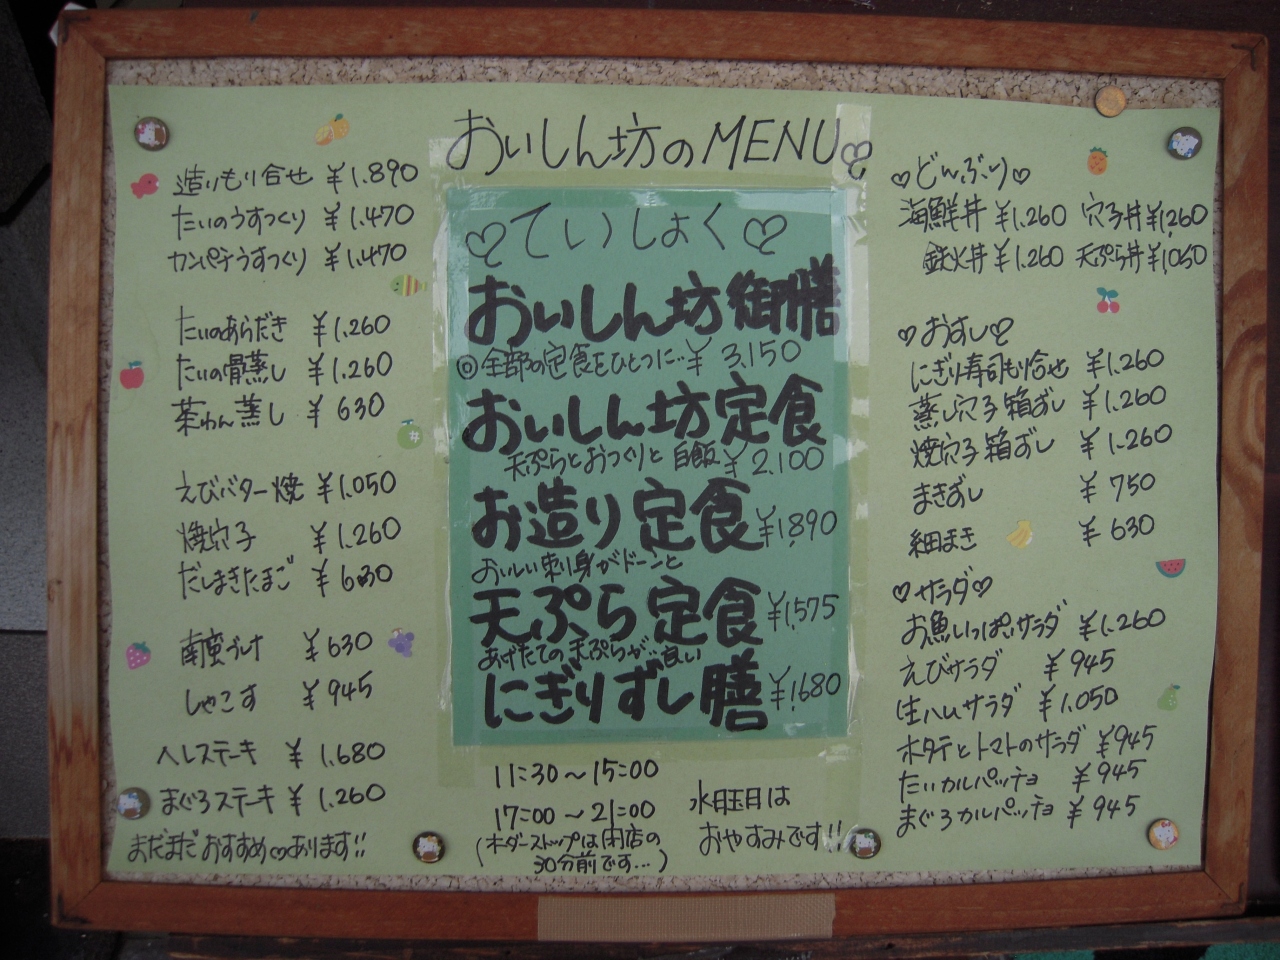 おいしん坊のMENU
造りもり合せ ¥1.890
たいのうすつくり ¥1.470
カンパチうすつくり ¥1.470
たいのあらだき ¥1.260
たいの骨蒸し ¥1.260
茶わん蒸し ¥630
えびバター焼 ¥1.050
焼穴子 ¥1.260
だしまきたまご ¥630
南蛮づけ ¥630
しゃこす ¥945
ヘレステーキ ¥1.680
まぐろステーキ ¥1.260
まだまだおすすめ♡あります!!
♡ていしょく♡
おいしん坊御膳
◎全部の定食をひとつに…¥3.150
おいしん坊定食
天ぷらとおつくりと白飯 ¥2.100
お造り定食 ¥1.890
おいしい刺り身がドーンと
天ぷら定食 ¥1.575
あげたての天ぷらが良い
にぎりずし膳 ¥1.680
11:30～15:00
17:00～21:00
(オーダーストップは閉店の
30分前です…)
水曜日は
おやすみです!!
♡どんぶり♡
海鮮丼 ¥1.260 穴子丼 ¥1.260
鉄火丼 ¥1.260 天ぷら丼 ¥1050
♡おすし♡
にぎり寿司もり合せ ¥1.260
蒸し穴子箱ずし ¥1.260
焼穴子箱ずし ¥1.260
まきずし ¥750
細まき ¥630
♡サラダ♡
お魚いっぱいサラダ ¥1.260
えびサラダ ¥945
生ハムサラダ ¥1.050
ホタテとトマトのサラダ ¥945
たいカルパッチョ ¥945
まぐろカルパッチョ ¥945